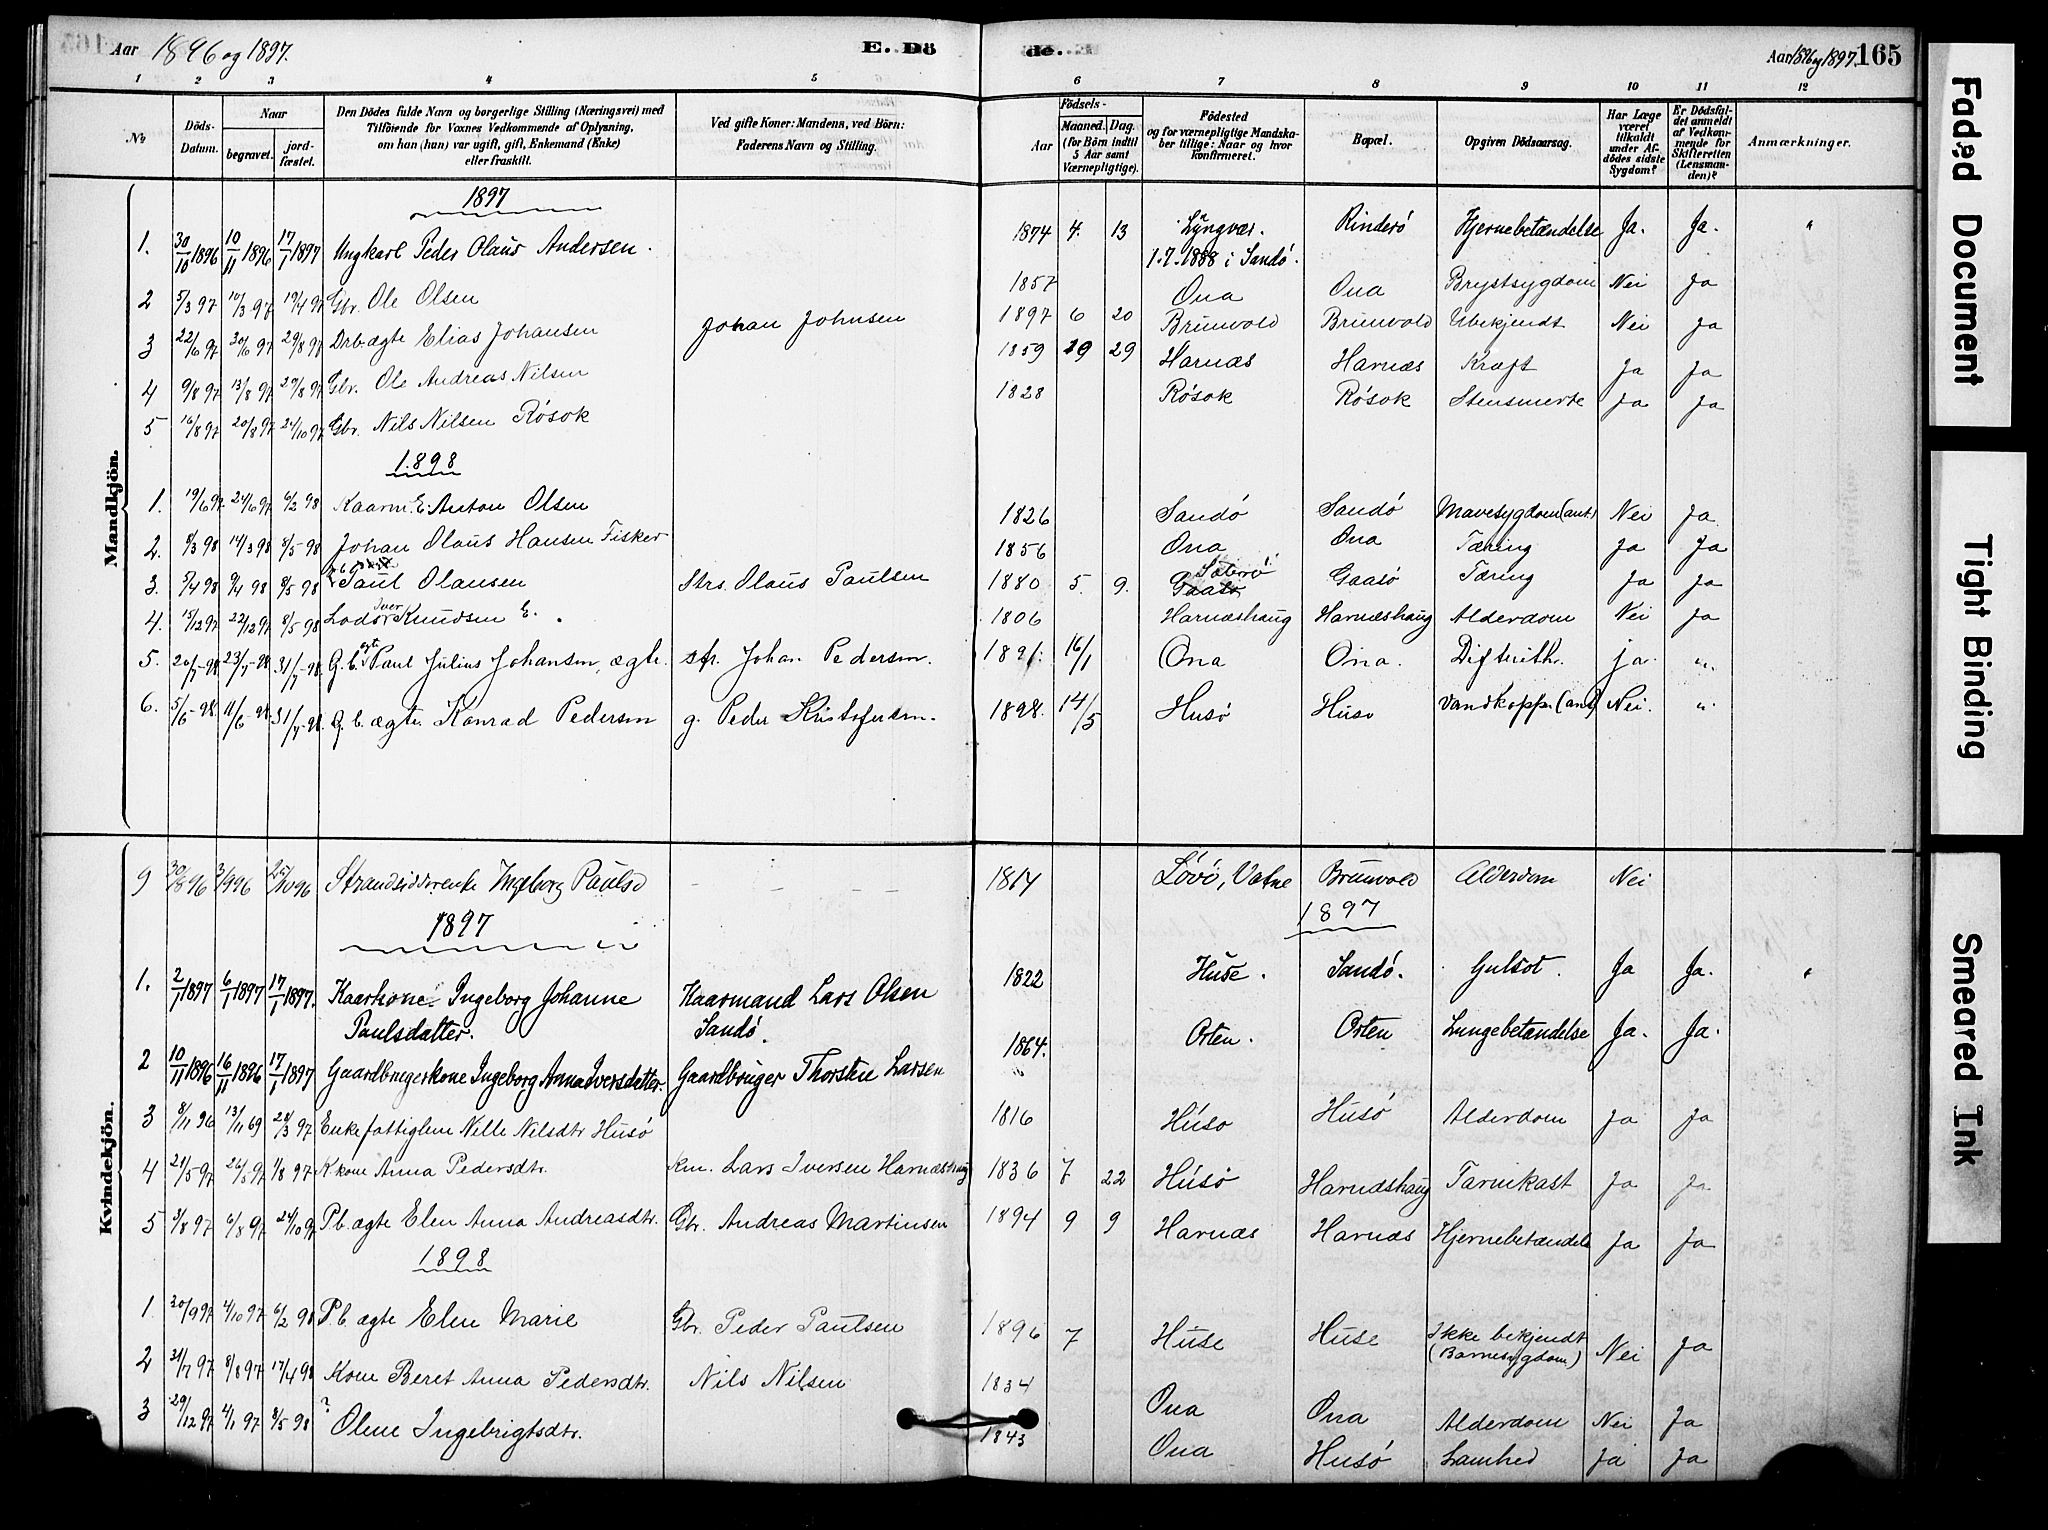 Aar 1896 og 1897. E. Dö
de. Aar 1896 og 1897. 165
1 2 3 4 5 6 7 8 9 10 11 12
No. Döds-Datum. Naar begravet. jord-fæstet. Den Dödes fulde Navn og borgerlige Stilling (Næringsvei) med Tilföiende for Voxnes Vedkommende af Oplysning, om han (hun) var ugift, gift, Enkemand (Enke) eller fraskilt. Ved gifte Koner: Mandens, ved Börn: Faderens Navn og Stilling. Födsels- Aar Maaned. Dag. (for Börn indtil 5 Aar samt Værnepligtige). Födested og for værnepligtige Mandskaber tillige: Naar og hvor Konfirmeret. Bopæl. Opgiven Dödsaarsag. Har Læge været tilkaldt under Afdödes sidste Sygdom? Er Dödsfaldet anmeldt af Vedkommende for Skifteretten (Lensmanden)? Anmærkninger.
Mandkjön.
1897
1. 30/10 1896 10/11 1896 17/1 1897 Ungkarl Peder Olaus Andersen. 1874 4. 13 Lyngvær. 1.7.1888 i Sandö. Rinderö Hjernebetændelse Ja. Ja. "
2 5/3 97 10/3 97 19/4 97 Gbr. Ole Olsen 1857 Ona Ona Brystsygdom Nei Ja
3 22/6 97 30/6 97 29/8 97 Drb. ægte Elias Johansen Johan Johnsen 1897 6 20 Brunvold Brunvold Ubekjendt Nei Ja
4 9/8 97 13/8 97 29/8 97 Gbr. Ole Andreas Nilsen 1859 29 Harnæs Harnæs Kræft Ja Ja
5 16/8 97 20/8 97 24/10 97 Gbr. Nils Nilsen Rösok 1828 Rösok Rösok Stensmerte Ja Ja
1898
1. 19/6 97 24/6 97 6/2 98 Kaarm. E. Anton Olsen 1826 Sandö Sandö Mavesygdom (ant.) Nei Ja
2. 8/3 98 14/3 98 8/5 98 Johan Olaus Hansen Fisker 1856 Ona Ona Tæring Ja Ja
3. 5/4 98 9/4 98 8/5 98 Paul Olausen Strs. Olaus Paulsen 1880 5. 9. Gaasö Gaasö Tæring Ja Ja
4. 15/12 97 22/12 97 8/5 98 Lods Iver Knudsen E. 1806 Harnæshaug Harnæshaug Alderdom Nei Ja
5. 20/7-98. 23/7-98. 31/7-98. G. b. ægte Paul Julius Johansen, ægte. str. Johan Pedersen. 1891. 16/1 Ona Ona. Difterith. ja. "
6. 5/6-98. 11/6-98. 31/7-98. G. b. ægte Konrad Pedersen g. Peder Kristofersen. 1898. 14/5 Husö Husö Vandkopper (ant) Nei. "
Kvindekjön.
9 30/8 96 3/9 96 25/10 96 Strandsidderenke Ingeborg Paulsd - - - - 1814 Lövö, Vatne Brunvold Alderdom Nei
1897 1897
1. 2/1 1897 6/1 1897 17/1 1897. Kaarkone Ingeborg Johanne Kaarmand Lars Olsen 1822 Huse. Sandö. Gulsot. Ja Ja.
Paulsdatter. Sandö.
2 10/11 1896 16/11 1896 17/1 1897 Gaardbrugerkone Ingeborg Anna Iversdatter. Gaardbruger Thorsten Larsen 1864. Orten. Orten Lungebetændelse Ja. Ja.
3 8/11 96 13/11 69 28/3 97 Enke fattiglem Nille Nilsdtr Husö 1816 Husö Husö Alderdom Ja Ja
4 21/5 97 26/5 97 1/8 97 K kone Anna Pedersdtr. Km. Lars Iversen Harnæshaug 1836 7 22 Husö Harnæshaug Tarmkast Ja Ja
5 3/8 97 6/8 97 24/10 97 Pb. ægte Elen Anna Andreasdtr. Gbr. Andreas Martinsen 1894 9 9 Harnæs Harnæs Hjernebetændelse Ja Ja
1898
1 30/9 97 4/10 97 6/2 98 P.b. ægte Elen Marie Gbr. Peder Paulsen 1896 7 Huse Huse Ikke bekjendt (Barnesygdom) Nei Ja
2 31/7 97 8/8 97 17/4 98 Kone Beret Anna Pedersdtr. Nils Nilsen 1834 Ona Ona Alderdom Nei Ja
3 29/12 97 4/1 97 8/5 98 ? Oline Ingebrigtsdtr. 1843 Ona Husö Lamhed Ja Ja
Faded Document
Tight Binding
Smeared Ink